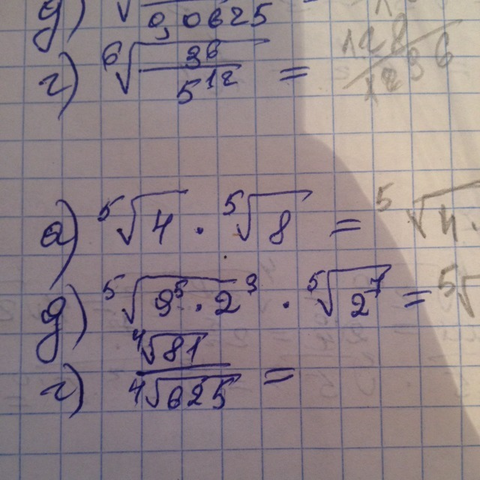 д) √ 0,0625
г) ⁶√(3⁶/5¹²) =
а) ⁵√4 · ⁵√8 = ⁵√4 ·
д) ⁵√(3⁵ · 2³) · ⁵√(2⁷) = ⁵√
г) ⁴√81 / ⁴√625 =